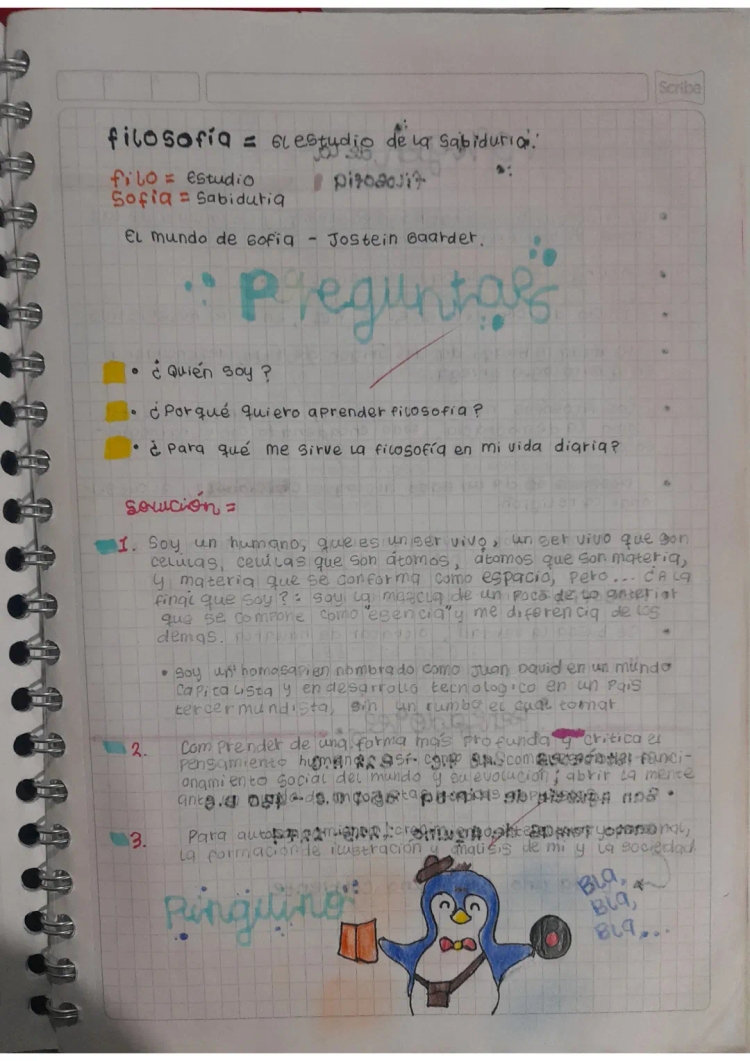 Scribe
filosofía = El estudio de la sabiduria.
filo = estudio
Sofia = sabiduria
El mundo de sofia - Jostein Gaarder.
Preguntas
• ¿Quién soy?
• ¿Porqué quiero aprender filosofia?
• ¿Para qué me sirve la filosofía en mi vida diaria?
Solución =
1. Soy un humano, que es un ser vivo, un ser vivo que son
celulas, celulas que son átomos, átomos que son materia,
y materia que se conforma como espacio, pero... ¿A la
final que soy?: soy la mezcla de un poco de lo anterior
que se compone como "esencia" y me diferencia de los
demas.
• Soy un homosapien nombrado como Juan David en un mundo
capitalista y en desarrollo tecnologico en un pais
tercermundista, sin un rumbo el cual tomar
2. Comprender de una forma más profunda y critica el
pensamiento funci-
onamiento social del mundo y su evolución; abrir la mente
3. Para
la formación de ilustración y análisis de mi y la sociedad
Pinguino
Bla,
Bla,
Bla...